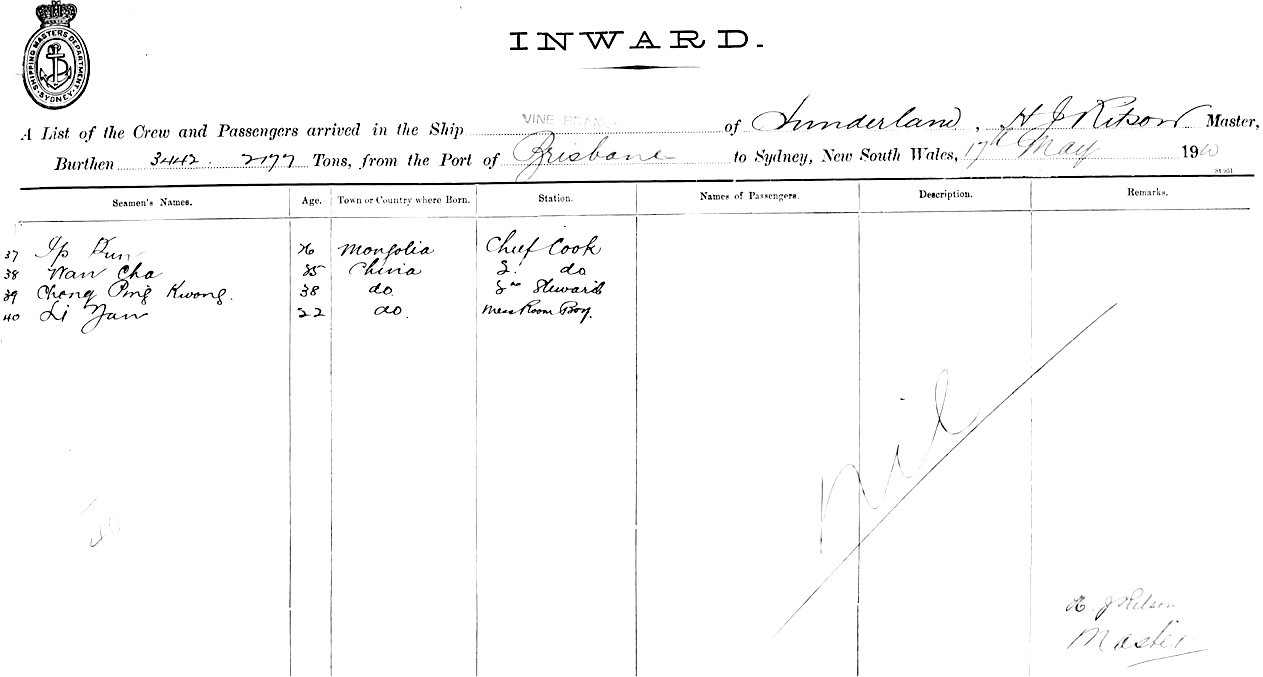 SHIPPING MASTERS DEPARTMENT SYDNEY
INWARD.
A List of the Crew and Passengers arrived in the Ship VINE BRANCH of Sunderland, H J Ritson Master,
Burthen 3442. 2177 Tons, from the Port of Brisbane to Sydney, New South Wales, 17th May 19
St 951
Seamen's Names. Age. Town or Country where Born. Station. Names of Passengers. Description. Remarks.
37 Ip Kun 26 Mongolia Chief Cook
38 Wan Cha 35 China 2. do
39 Chong Ping Kwong. 38 do. Steward
40 Li Yan 22 do. Mess Room Boy.
nil
40
H. J Ritson
Master